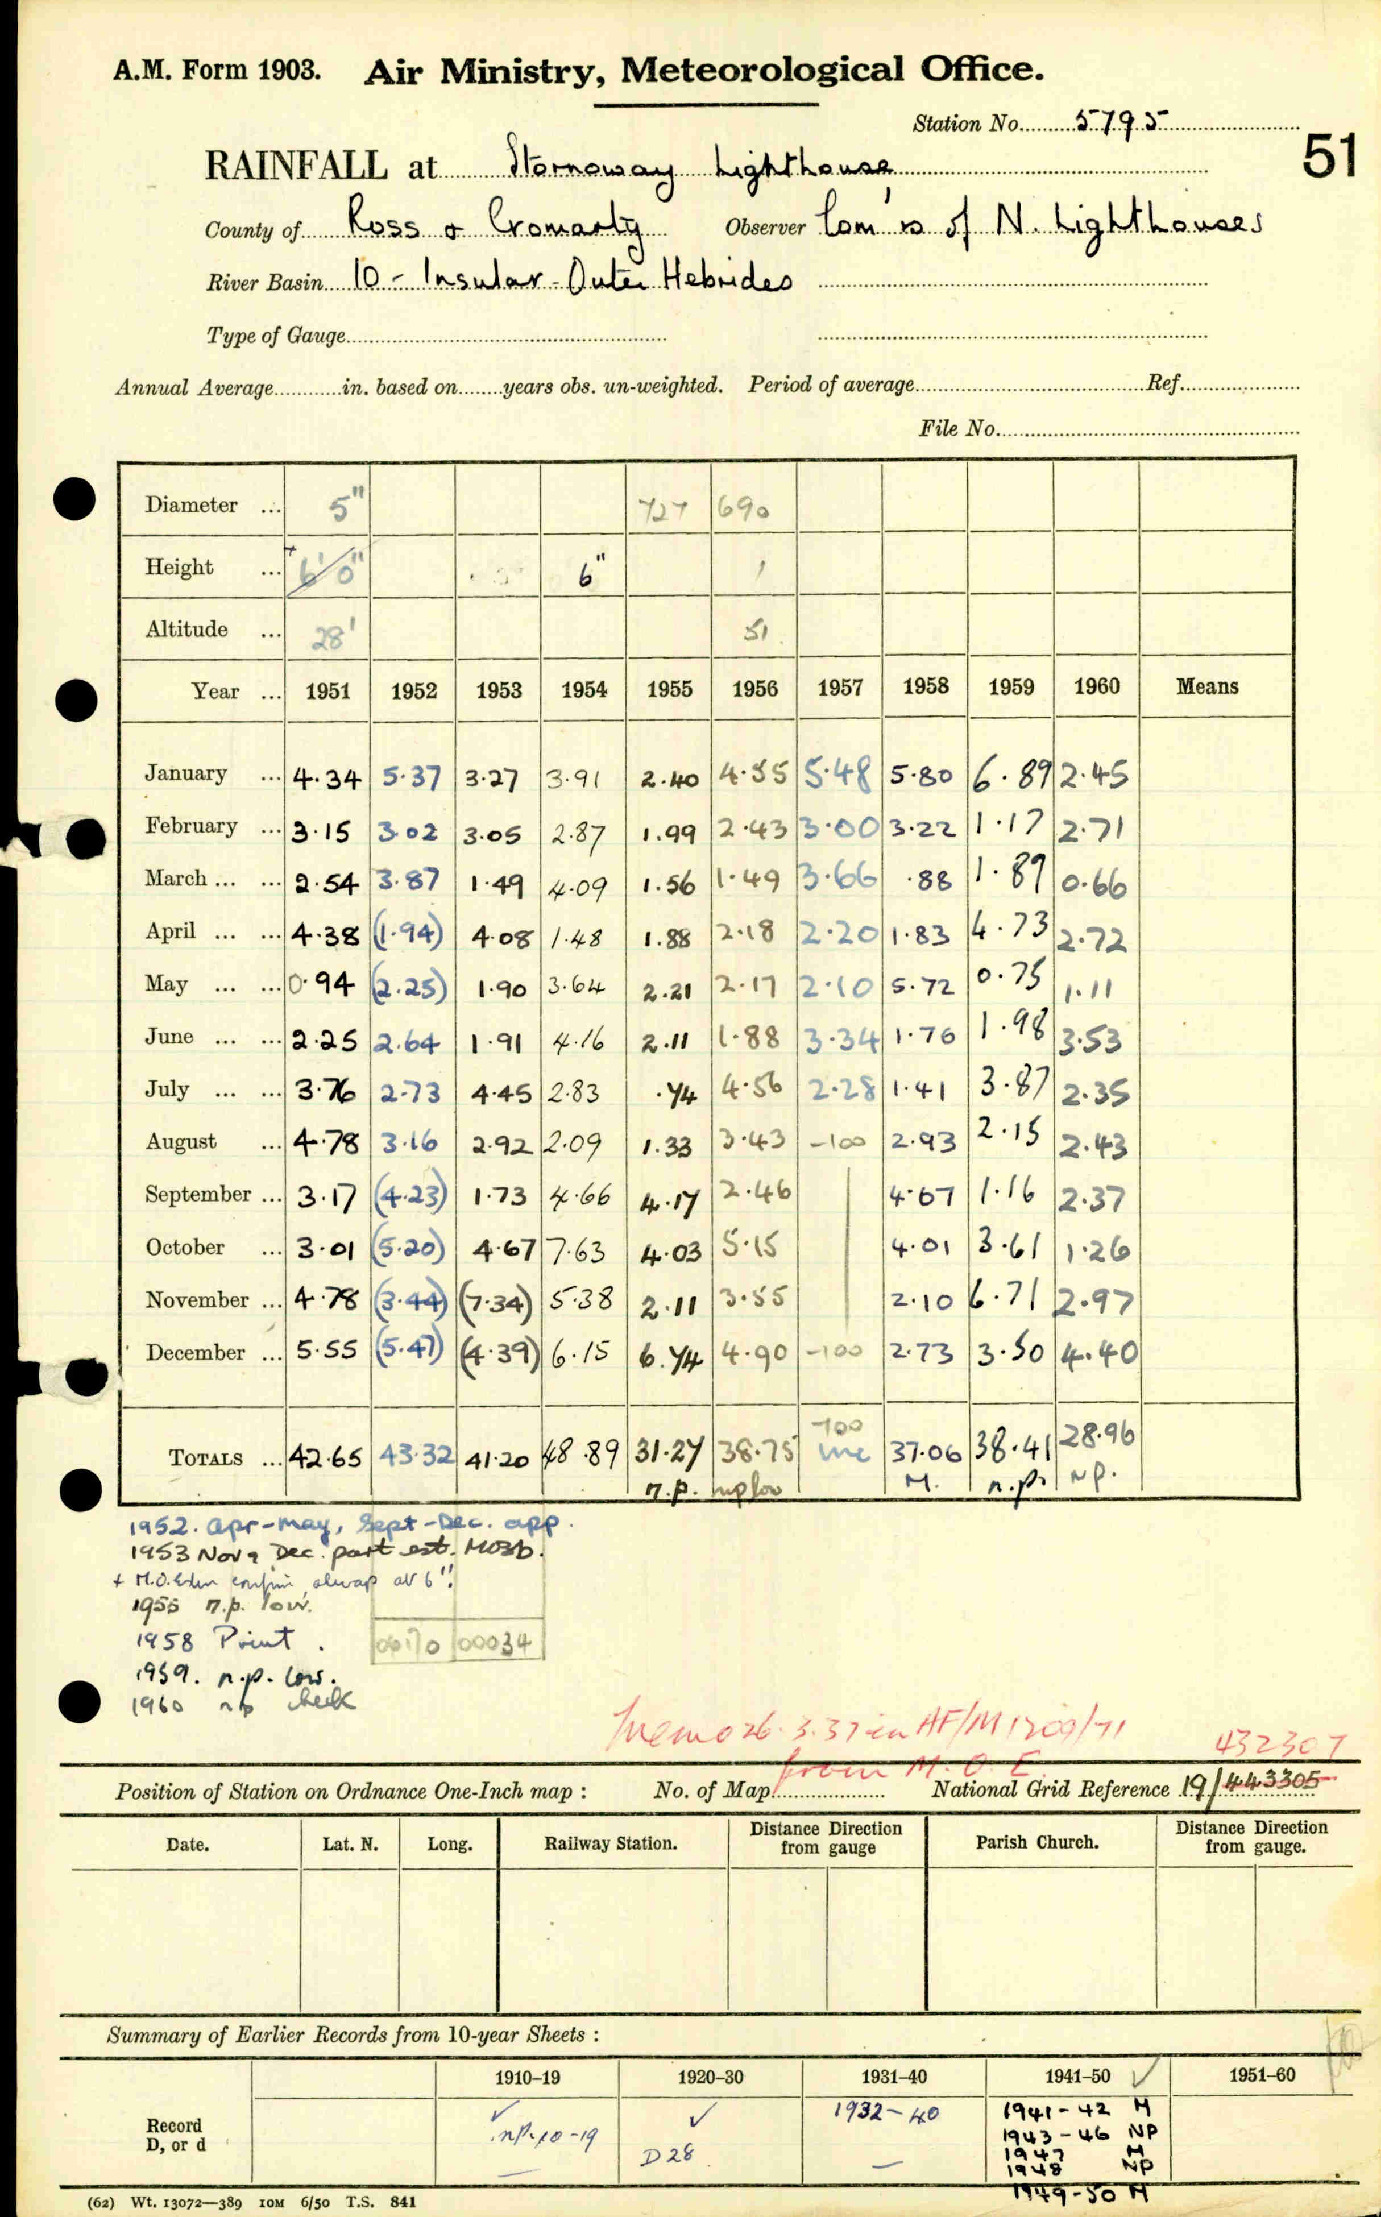 A.M. Form 1903. Air Ministry, Meteorological Office.
Station No. 5795
51
RAINFALL at Stornoway Lighthouse
County of Ross & Cromarty Observer Com'rs of N. Lighthouses
River Basin 10 - Insular - Outer Hebrides
Type of Gauge
Annual Average in. based on years obs. un-weighted. Period of average Ref.
File No.
Diameter ... 5" 727 690
Height ... + 6'0" 6" 1
Altitude ... 28' 51
Year ... 1951 1952 1953 1954 1955 1956 1957 1958 1959 1960 Means
January ... 4.34 5.37 3.27 3.91 2.40 4.55 5.48 5.80 6.89 2.45
February ... 3.15 3.02 3.05 2.87 1.99 2.43 3.00 3.22 1.17 2.71
March ... ... 2.54 3.87 1.49 4.09 1.56 1.49 3.66 .88 1.89 0.66
April ... ... 4.38 (1.94) 4.08 1.48 1.88 2.18 2.20 1.83 4.73 2.72
May ... ... 0.94 (2.25) 1.90 3.64 2.21 2.17 2.10 5.72 0.75 1.11
June ... ... 2.25 2.64 1.91 4.16 2.11 1.88 3.34 1.76 1.98 3.53
July ... ... 3.76 2.73 4.45 2.83 .74 4.56 2.28 1.41 3.87 2.35
August ... 4.78 3.16 2.92 2.09 1.33 3.43 -100 2.93 2.15 2.43
September ... 3.17 (4.23) 1.73 4.66 4.17 2.46 4.67 1.16 2.37
October ... 3.01 (5.20) 4.67 7.63 4.03 5.15 4.01 3.61 1.26
November ... 4.78 (3.44) (7.34) 5.38 2.11 3.55 2.10 6.71 2.97
December ... 5.55 (5.47) (4.39) 6.15 6.74 4.90 -100 2.73 3.50 4.40
-100
TOTALS ... 42.65 43.32 41.20 48.89 31.27 38.75 inc 37.06 38.41 28.96
n.p. np low M. n.p. NP.
1952. Apr-May, Sept-Dec. app.
1953 Nov & Dec. part est. MO3b.
+ M.O. Edin confirm always at 6"!
1955 n.p. low.
1958 Print.
00034
1959. n.p. low.
1960 np check
Memo 26.3.37 in AF/M1209/71
from M.O.E.
432307
Position of Station on Ordnance One-Inch map : No. of Map National Grid Reference 19/443305
Date. Lat. N. Long. Railway Station. Distance from gauge Direction Parish Church. Distance from gauge. Direction
Summary of Earlier Records from 10-year Sheets :
1910-19 1920-30 1931-40 1941-50 ✓ 1951-60
Record D, or d
✓ ✓ 1932-40 1941-42 M
np. 10-19 D28 — 1943-46 NP
1947 M
1948 NP
1949-50 M
(62) Wt. 13072—389 10M 6/50 T.S. 841